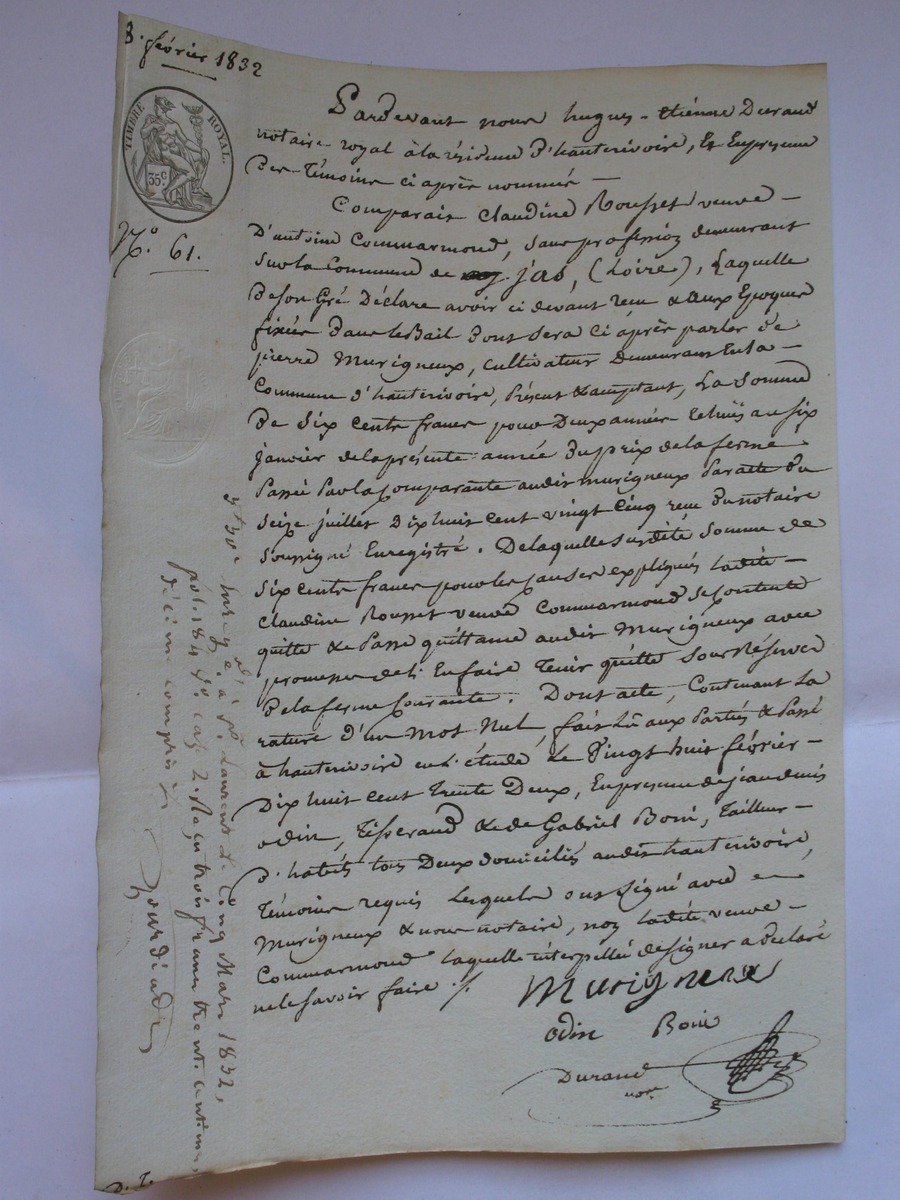 8. février 1832
TIMBRE ROYAL.
35 c.
N.° 61.
Pardevant nous hugues-etienne Durand
notaire royal à la résidence d'hauterivoire, Et En présence
Des Témoins ci après nommés —
Comparait Claudine Rousset veuve —
D'antoine Commarmond, sans profession demeurant
Sur la Commune de jas, (Loire), Laquelle
De son Gré Déclare avoir ci devant recu & aux Epoques
fixées Dans le Bail Dont sera ci après parler De
pierre Murigneux, Cultivateur Demeurant En la —
Commune d'hauterivoire, présent & acceptant, La Somme
De Six Cents francs pour Deux années Echues au six
janvier de la présente année Du prix de la ferme
passée par la Comparante audit murigneux par acte Du
Seize juillet Dix huit cent vingt cinq recu Du notaire
Soussigné Enregistré. De laquelle susdite Somme de
Six Cents francs pour les causes expliquées ladite —
Claudine Rousset veuve Commarmond se contente
quitte & passe quittance audit Murigneux avec
promesse de l'En faire Tenir quitte sous Réserves
De la ferme Courante. Dont acte, Contenant La
rature d'un mot Nul, fait Lû aux Parties & passé
à hauterivoire en l'étude Le Vingt huit février —
Dix huit cent trente Deux, En présence de jean denis
odin, Tisserand & de Gabriel Boni, Tailleur —
D'habits tous Deux domiciliés audit hauterivoire,
Témoins requis Lesquels ont signé avec —
Murigneux & nous notaire, non ladite veuve —
Commarmond laquelle interpellée de signer a déclaré
ne le savoir faire ./.
Murigneux
odin Boni
Durand
not.re
3f 30c Enreg.é à S.t Laurent Le Cinq Mars 1832,
fol. 184 v.o cas 2. Reçu trois francs trente centimes
décime compris
D. T.